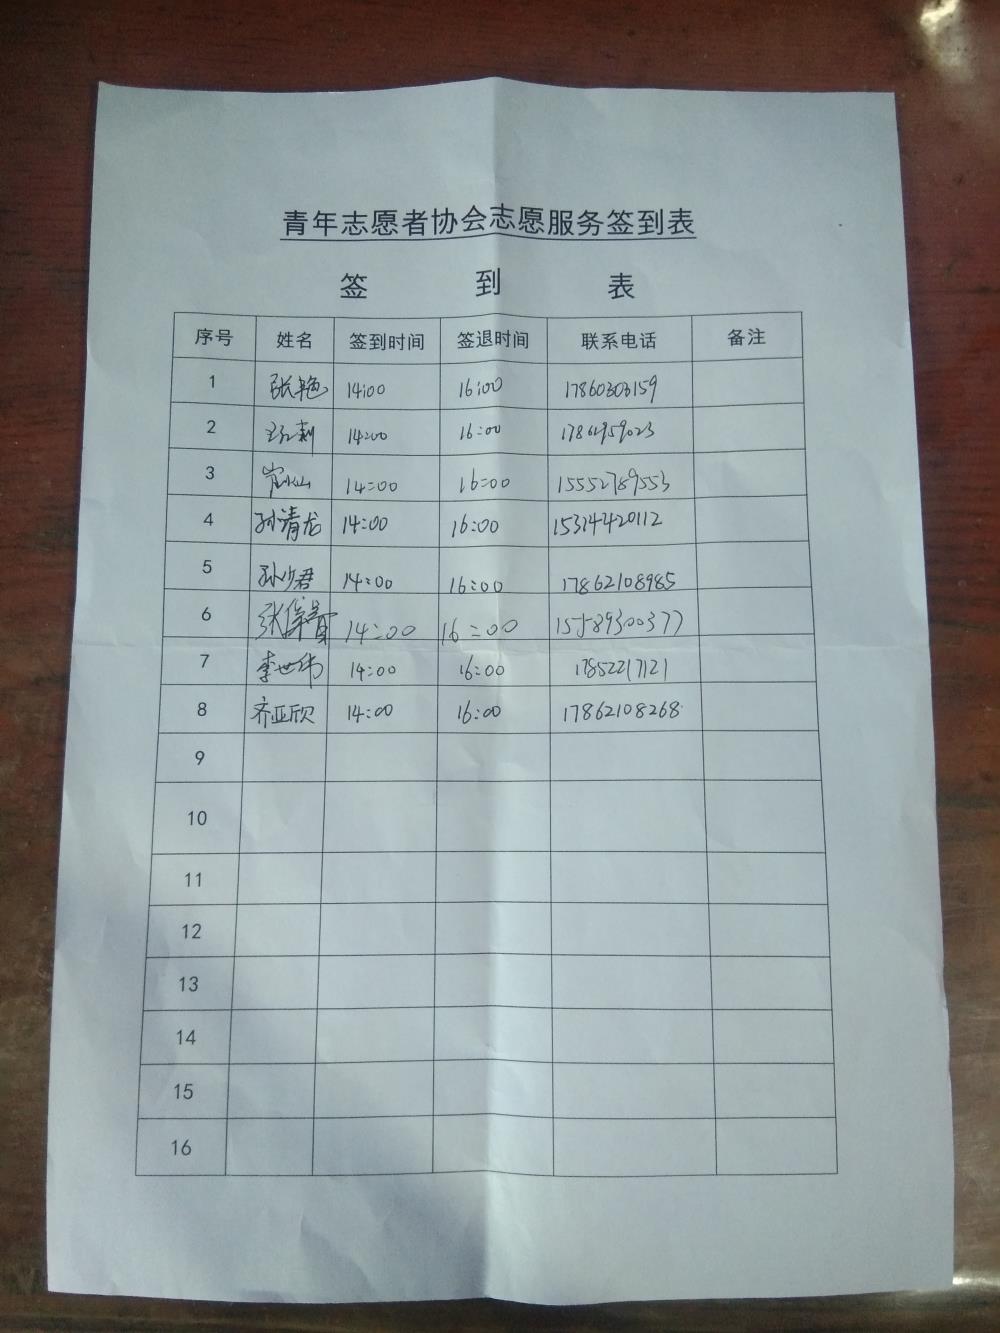 青年志愿者协会志愿服务签到表
签 到 表
序号 姓名 签到时间 签退时间 联系电话 备注
1 张艳 14:00 16:00 17860303159
2 14:00 16:00 17861959023
3 14:00 16:00 15552789553
4 孙清龙 14:00 16:00 15314420112
5 孙少君 14:00 16:00 17862108985
6 张 14:00 16:00 15589300377
7 李世伟 14:00 16:00 17852217121
8 齐亚欣 14:00 16:00 17862108268
9
10
11
12
13
14
15
16